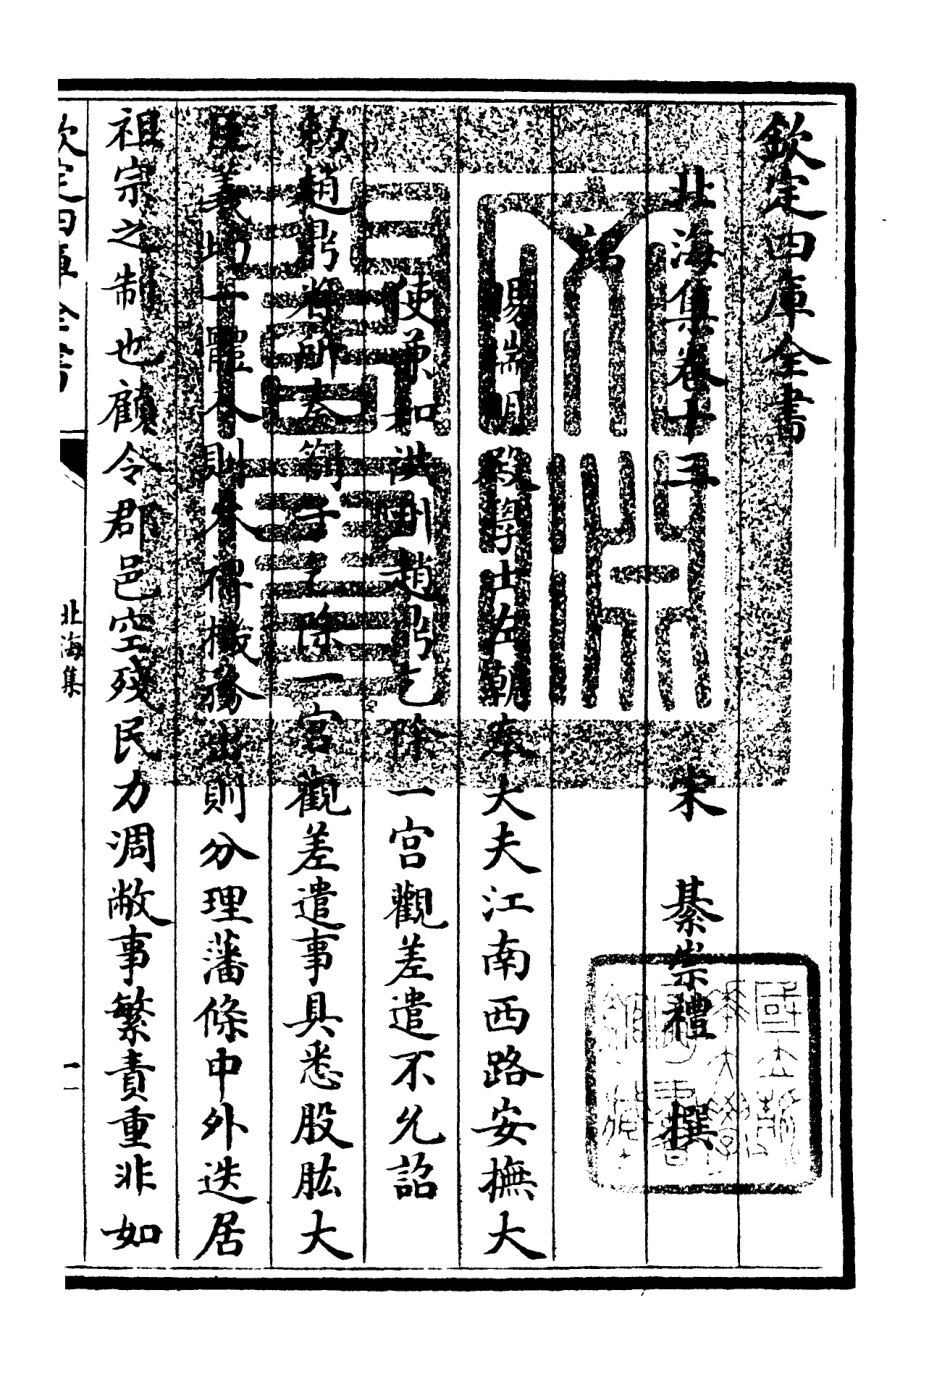 欽定四庫全書
北海集卷十三
宋 綦崇禮 撰
詔
賜端明殿學士左朝奉大夫江南西路安撫大
使兼知洪州趙鼎乞除一宮觀差遣不允詔
勅趙鼎省所奏劄子乞除一宮觀差遣事具悉股肱大
臣義均一體入則參裨機務出則分理藩條中外迭居
祖宗之制也顧令郡邑空殘民力凋敝事繁責重非如
欽定四庫全書
北海集
一